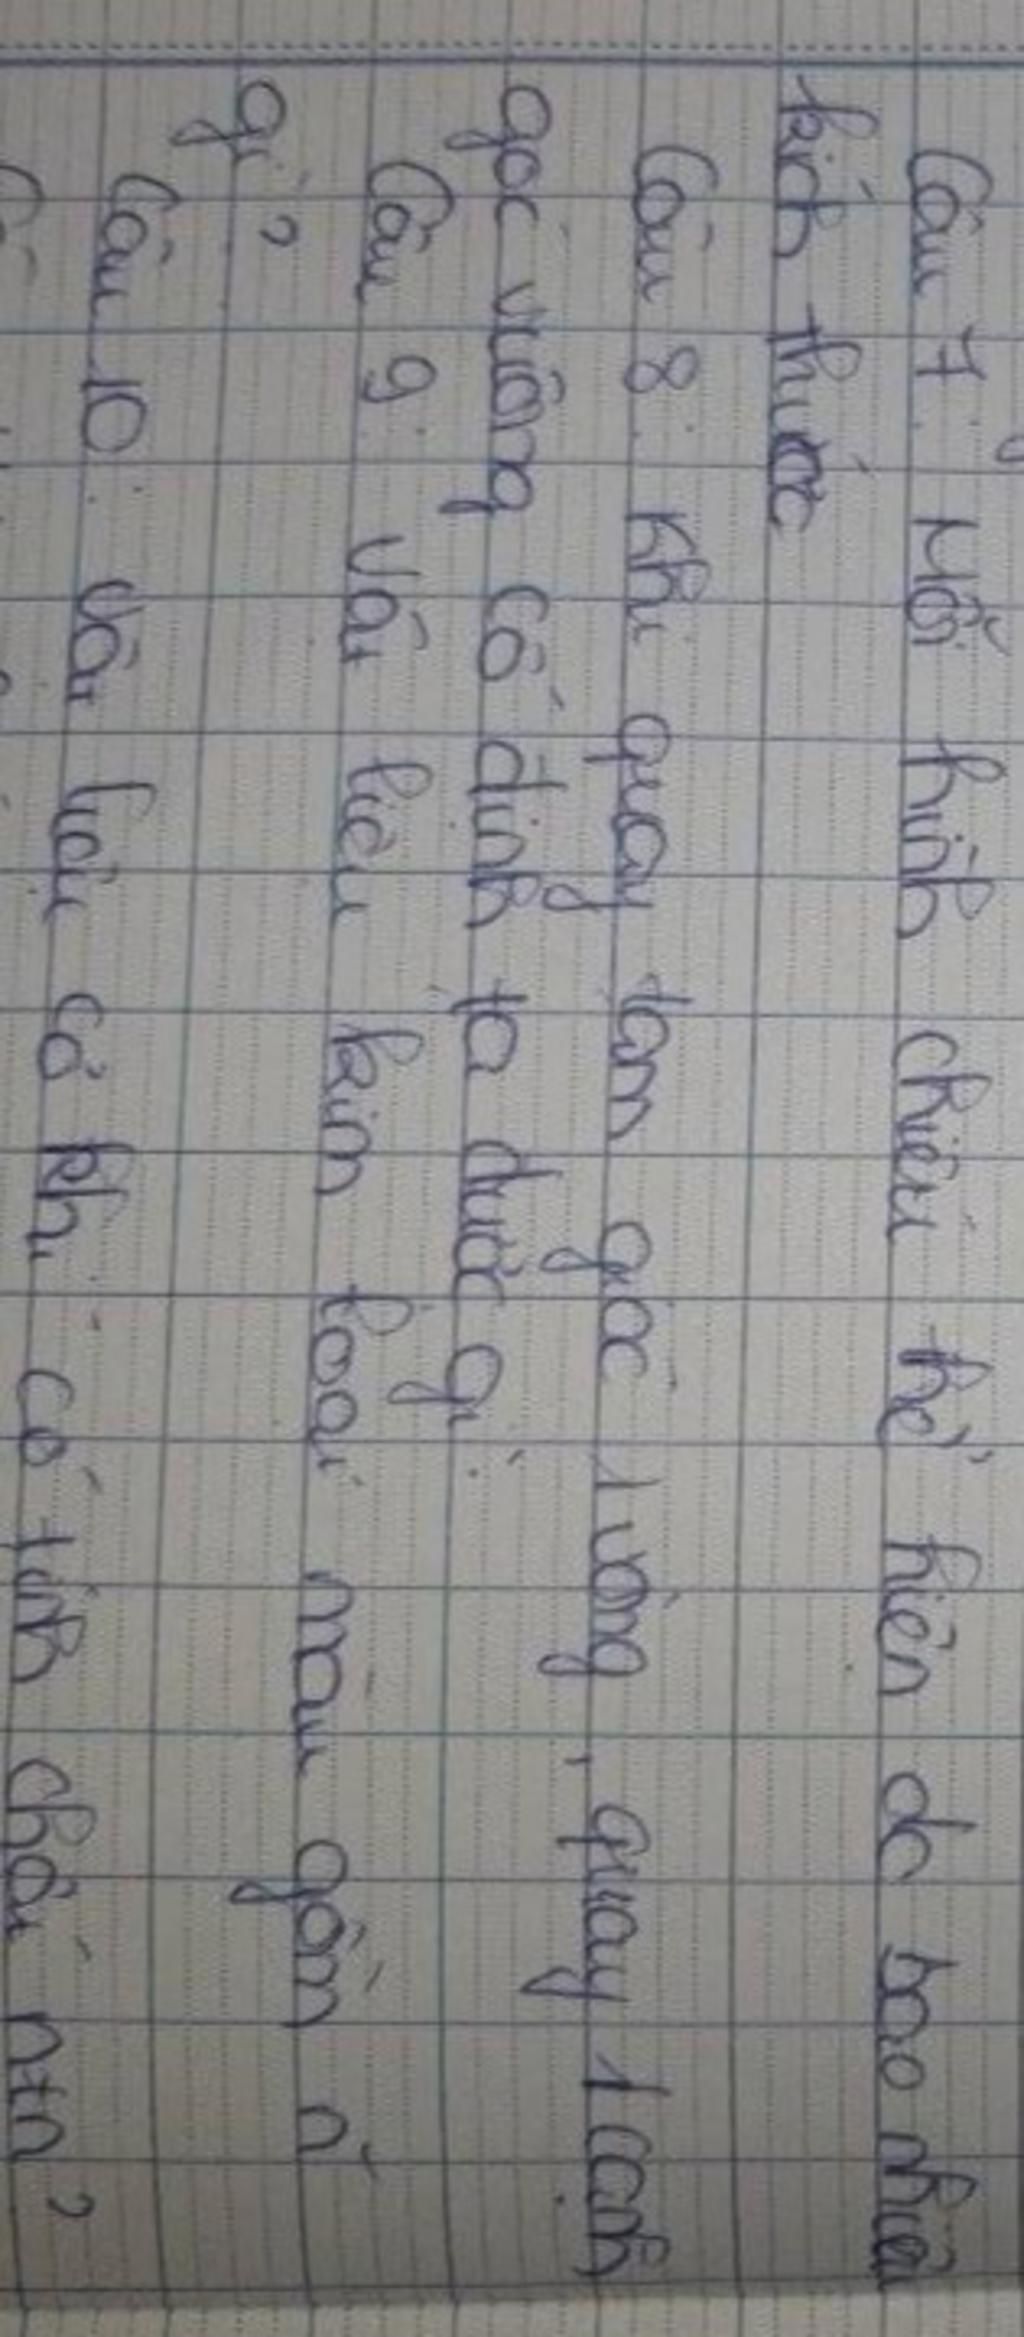 Câu 7: Mỗi hình chiếu thể hiện dc bao nhiêu
kích thước
Câu 8: Khi quay tam giác 1 vuông, quay 1 cạnh
góc vuông cố định ta được gì
Câu 9: Vật liệu kim loại màu gồm n~
gì?
Câu 10: Vật liệu cơ khí có tính chất ntn?